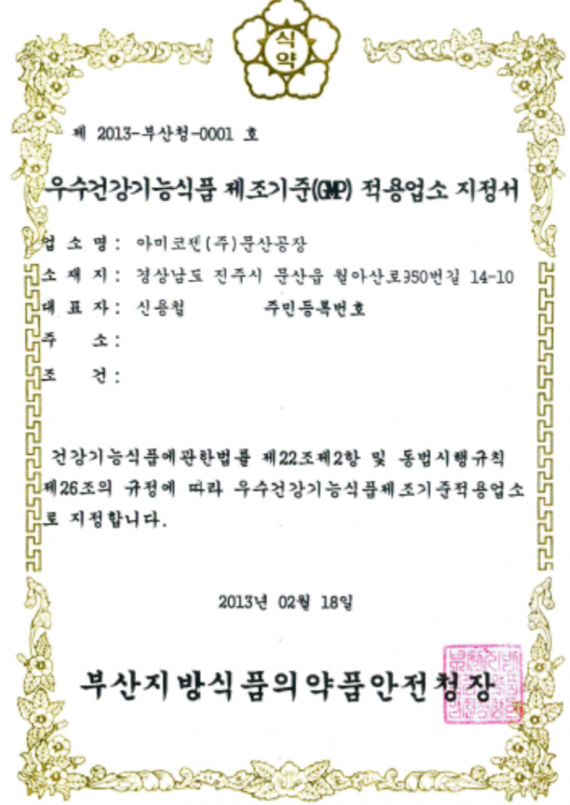 식약
제 2013-부산청-0001 호
우수건강기능식품 제조기준(GMP) 적용업소 지정서
업 소 명 : 아미코젠(주)문산공장
소 재 지 : 경상남도 진주시 문산읍 월아산로950번길 14-10
대 표 자 : 신용철 주민등록번호
주 소 :
조 건 :
건강기능식품에관한법률 제22조제2항 및 동법시행규칙
제26조의 규정에 따라 우수건강기능식품제조기준적용업소
로 지정합니다.
2013년 02월 18일
부산지방식품의약품안전청장